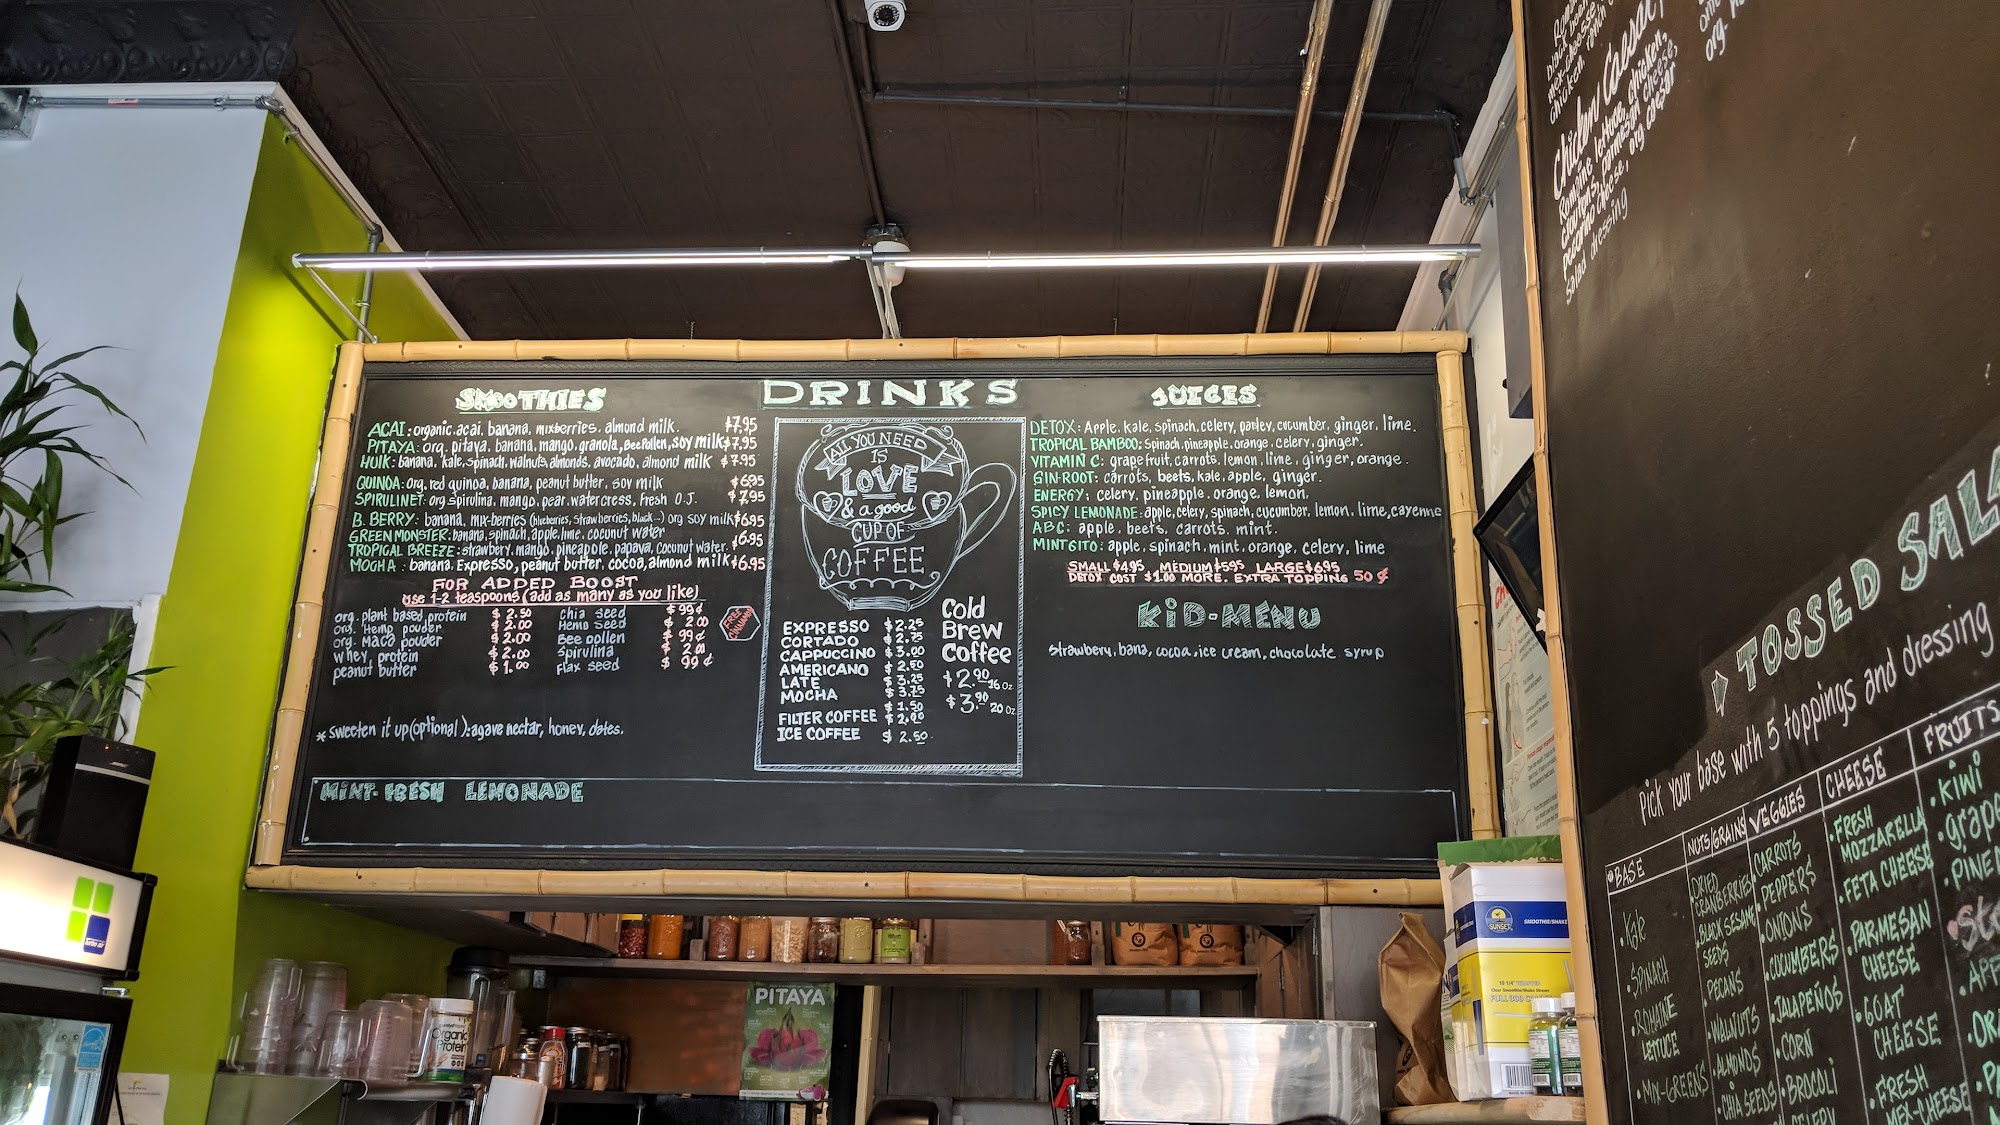 SMOOTHIES
ACAI: organic acai, banana, mixberries, almond milk. $7.95
PITAYA: org. pitaya, banana, mango, granola, Bee Pollen, soy milk $7.95
HULK: banana, kale, spinach, walnuts, almonds, avocado, almond milk $7.95
QUINOA: org. red quinoa, banana, peanut butter, soy milk $6.95
SPIRULINET: org spirulina, mango, pear, watercress, fresh O.J. $7.95
B. BERRY: banana, mix-berries (blueberries, strawberries, black..) org soy milk $6.95
GREEN MONSTER: banana, spinach, apple, lime, coconut water
TROPICAL BREEZE: strawberry, mango, pineapple, papaya, coconut water. $6.95
MOCHA: banana, Expresso, peanut butter, cocoa, almond milk $6.95
FOR ADDED BOOST
use 1-2 teaspoons (add as many as you like)
org. plant based protein $2.50 chia seed $99¢
org. Hemp pouder $2.00 Hemp Seed $2.00
org. Maca pouder $2.00 Bee pollen $99¢
whey protein $2.00 spirulina $2.00
peanut butter $1.00 flax seed $99¢
FREE CINNAMON
* sweeten it up (optional): agave nectar, honey, dates.
MINT-FRESH LEMONADE
DRINKS
ALL YOU NEED
IS
LOVE
& a good
CUP OF
COFFEE
EXPRESSO $2.25
CORTADO $2.75
CAPPUCCINO $3.00
AMERICANO $2.50
LATE $3.25
MOCHA $3.75
FILTER COFFEE $1.50 $2.00
ICE COFFEE $2.50
Cold
Brew
Coffee
$2.90 16 oz
$3.90 20 oz
JUICES
DETOX: Apple, kale, spinach, celery, parley, cucumber, ginger, lime.
TROPICAL BAMBOO: Spinach, pineapple, orange, celery, ginger.
VITAMIN C: grapefruit, carrots, lemon, lime, ginger, orange.
GIN-ROOT: carrots, beets, kale, apple, ginger.
ENERGY: celery, pineapple, orange, lemon.
SPICY LEMONADE: apple, celery, spinach, cucumber, lemon, lime, cayenne
ABC: apple, beets, carrots, mint.
MINTGITO: apple, spinach, mint, orange, celery, lime
SMALL $4.95 MEDIUM $5.95 LARGE $6.95
DETOX COST $1.00 MORE. EXTRA TOPPING 50¢
KID-MENU
strawbery, bana, cocoa, ice cream, chocolate syrup
Chicken Caesar
Romaine lettuce, chicken,
croutons, parmesan cheese,
pecorino cheese, org caesar
salad dressing
TOSSED SAL
Pick your base with 5 toppings and dressing
BASE
• Kale
• SPINACH
• ROMAINE LETTUCE
• MIX-GREENS
NUTS/GRAINS
DRIED CRANBERRIES
• BLACK SESAME SEEDS
• PECANS
• WALNUTS
• ALMONDS
• CHIA SEEDS
VEGGIES
• CARROTS
• PEPPERS
• ONIONS
• CUCUMBERS
• JALAPEÑOS
• CORN
• BROCOLI
CELERY
CHEESE
• FRESH MOZZARELLA
• FETA CHEESE
• PARMESAN CHEESE
• GOAT CHEESE
• FRESH MEX-CHEESE
FRUITS
• kiwi
• grape
• PINE
PITAYA
Organic
Protein
turbo air
SUNSET
SMOOTHIE/SHAKE